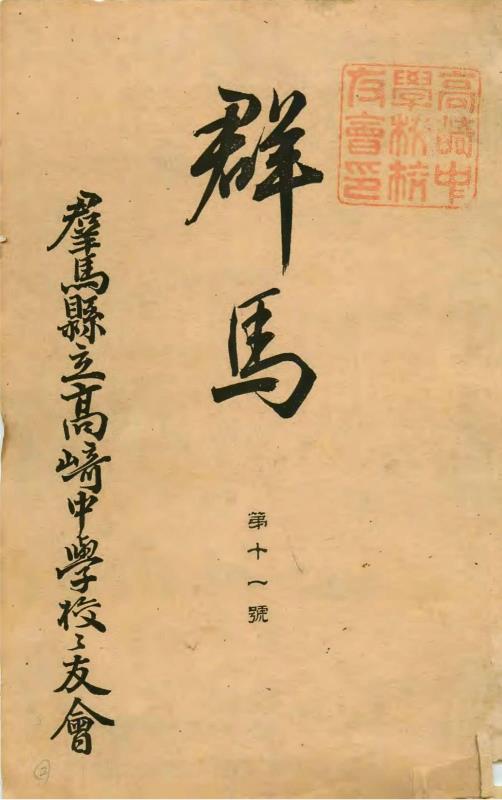 高崎中
學校校
友會印
群馬
第十一號
羣馬縣立高崎中學校々友會
2